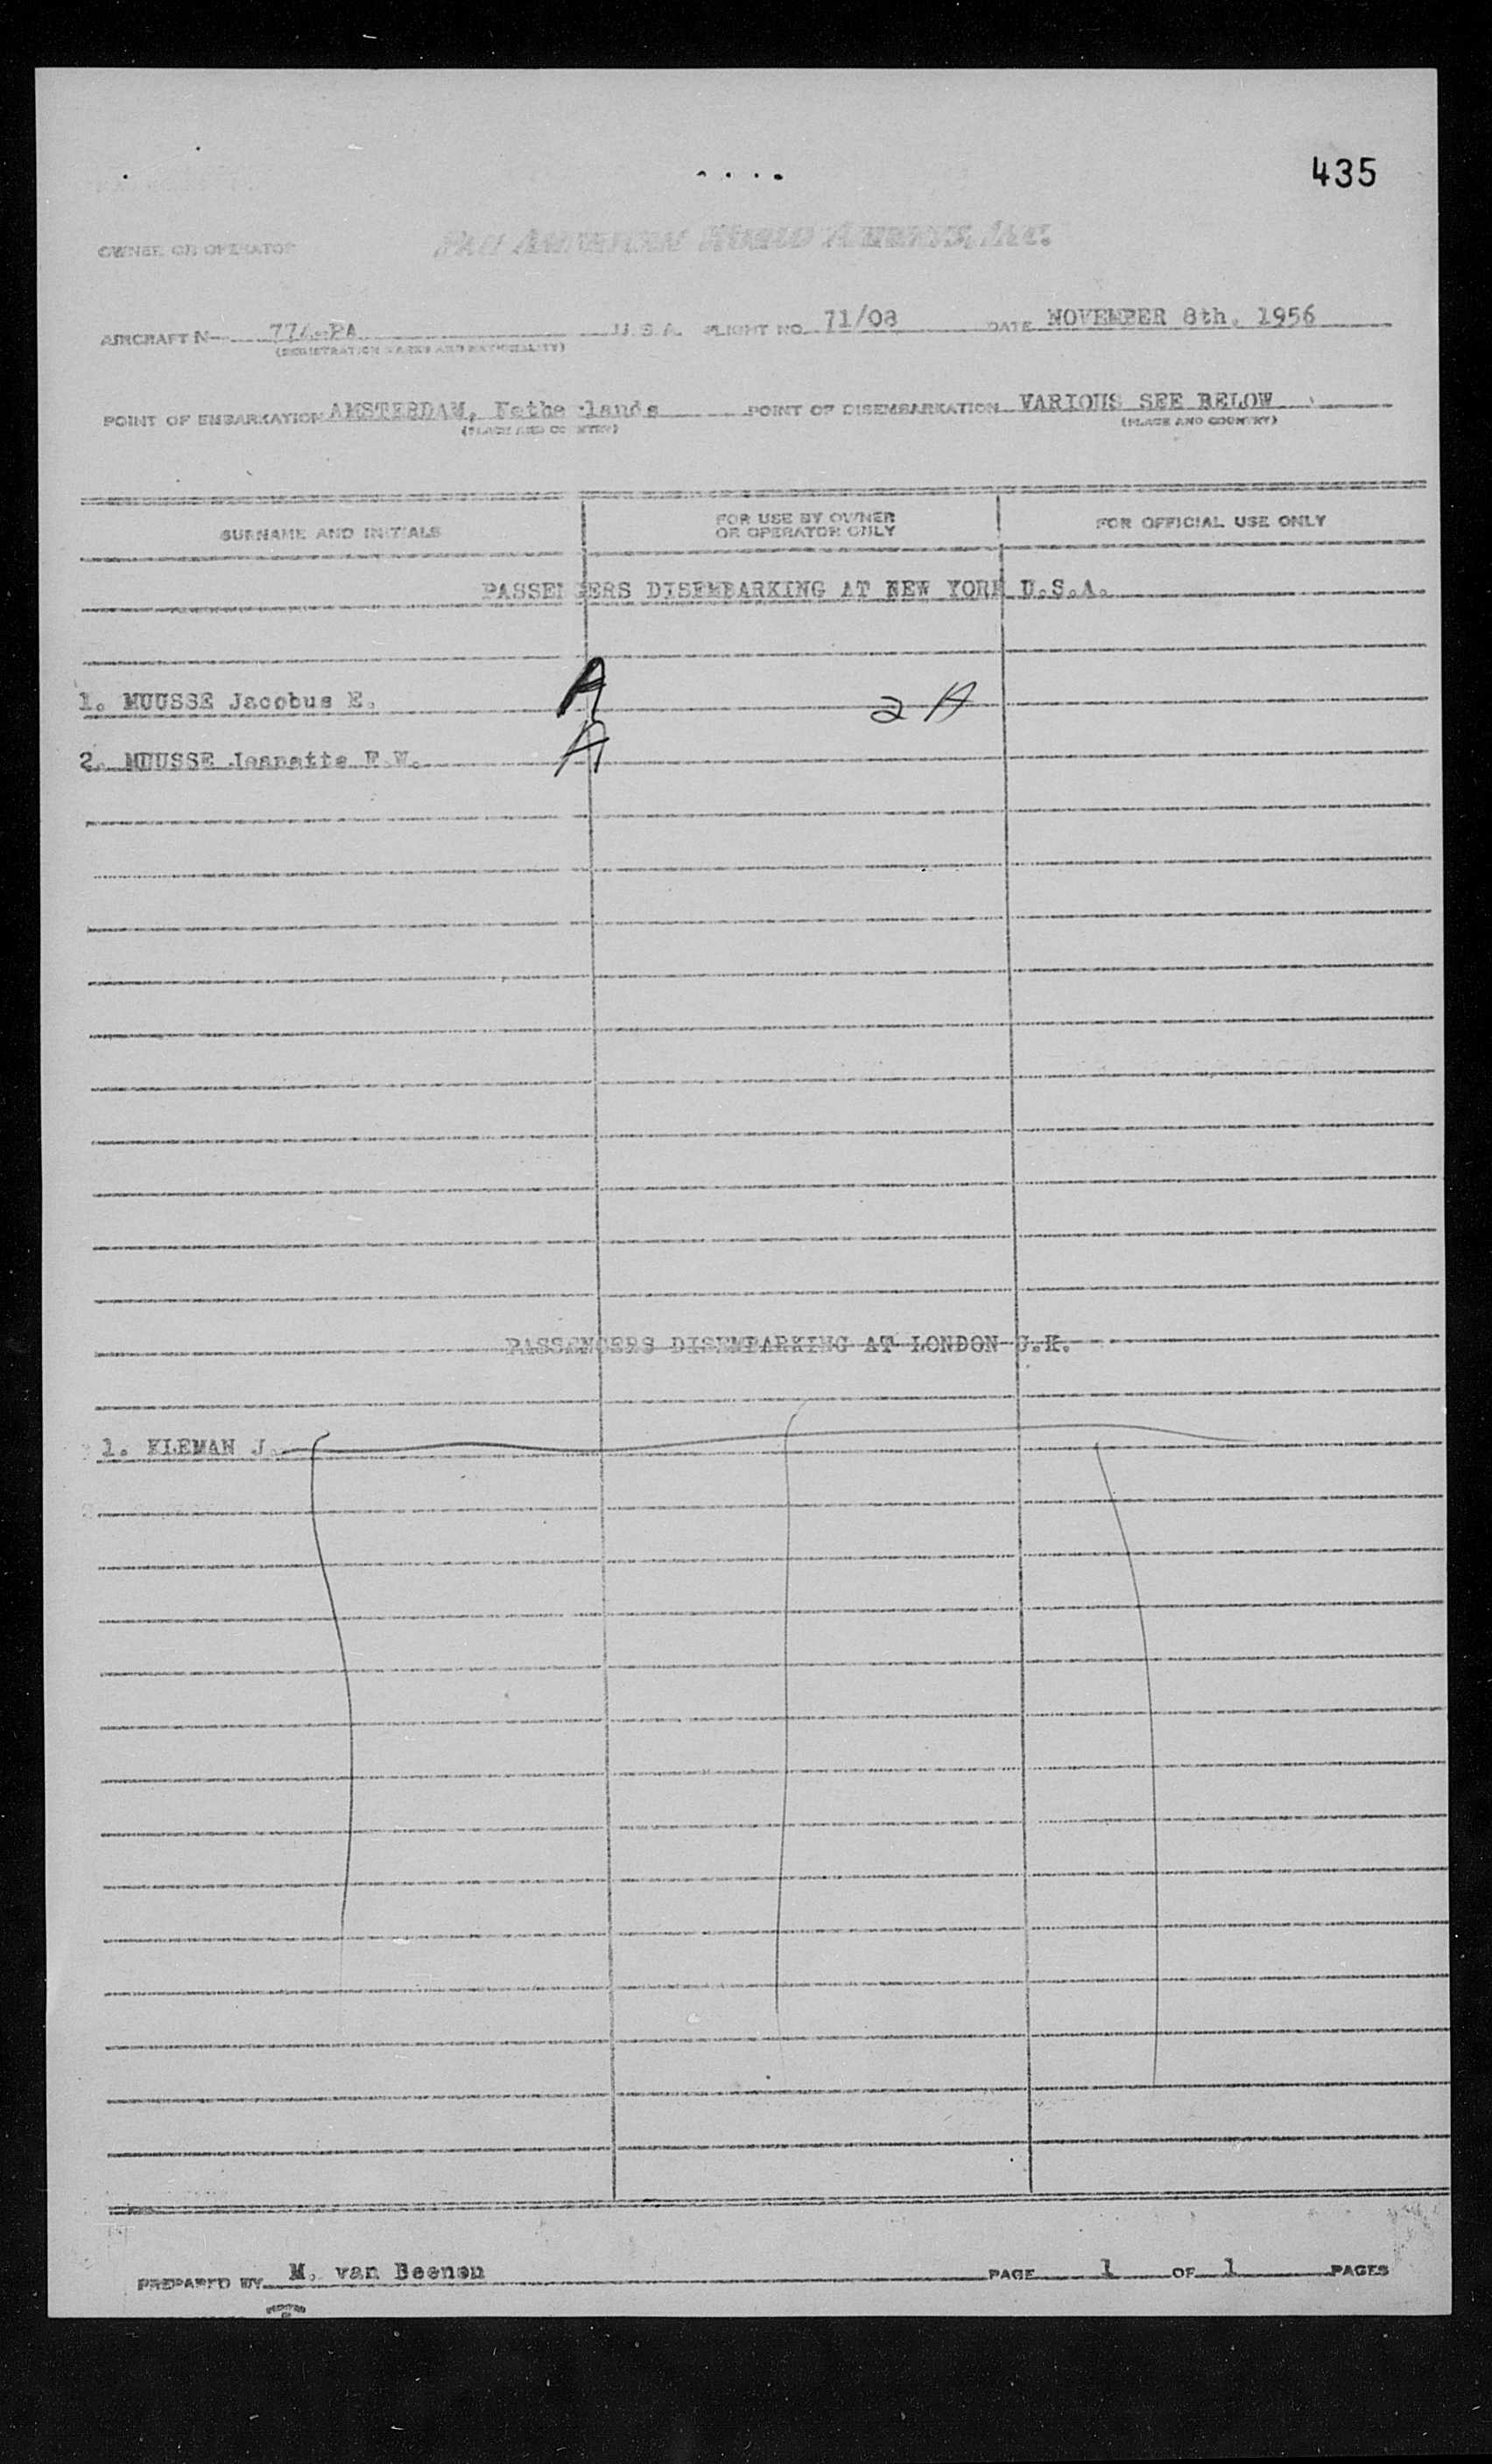 435
OWNER OR OPERATOR PAN AMERICAN WORLD AIRWAYS, INC.
AIRCRAFT N 774-PA U.S.A. FLIGHT NO. 71/08 DATE NOVEMBER 8th. 1956
(REGISTRATION MARKS AND NATIONALITY)
POINT OF EMBARKATION AMSTERDAM, Netherlands POINT OF DISEMBARKATION VARIOUS SEE BELOW
(PLACE AND COUNTRY) (PLACE AND COUNTRY)
SURNAME AND INITIALS FOR USE BY OWNER OR OPERATOR ONLY FOR OFFICIAL USE ONLY
PASSENGERS DISEMBARKING AT NEW YORK U.S.A.
1. MUUSSE Jacobus E. A 2 A
2. MUUSSE Jeanette F.W. A
PASSENGERS DISEMBARKING AT LONDON U.K.
1. KLEMAN J.
PREPARED BY M. van Beenen PAGE 1 OF 1 PAGES